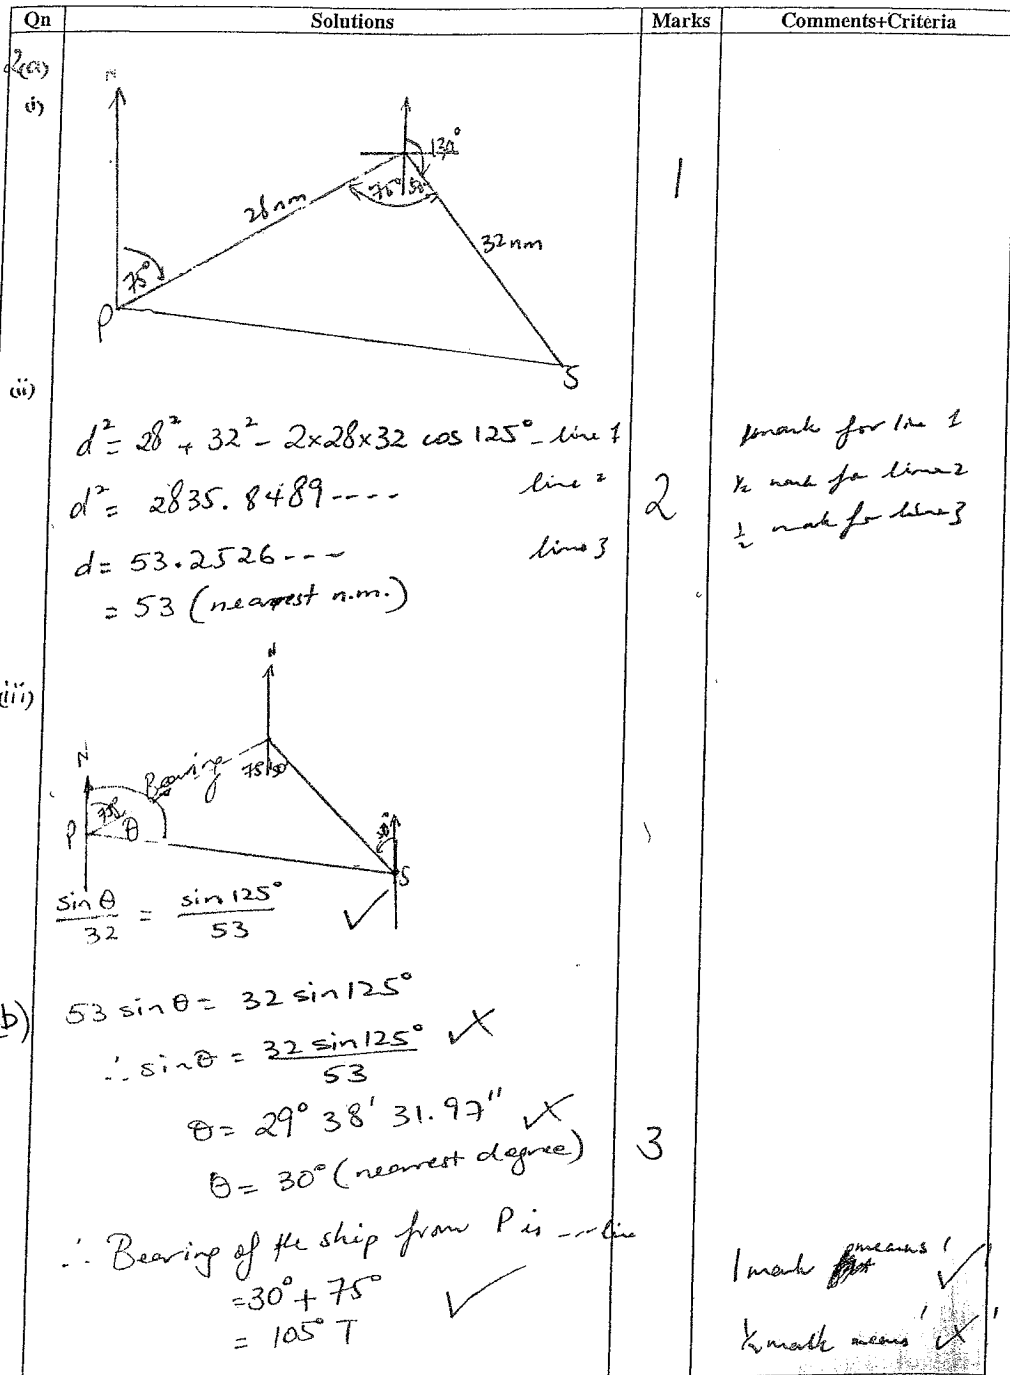 Qn Solutions Marks Comments+Criteria
2(a)
(i)
N
130°
75° 50°
28 nm
32 nm
75°
P
S
1
(ii)
d² = 28² + 32² - 2×28×32 cos 125° - line 1
d² = 2835.8489---- line 2
d = 53.2526--- line 3
= 53 (nearest n.m.)
2
1 mark for line 1
½ mark for line 2
½ mark for line 3
(iii)
N
N
Bearing
75° 50°
75°
P θ
50°
S
sin θ / 32 = sin 125° / 53 ✓
b) 53 sin θ = 32 sin 125°
∴ sin θ = 32 sin 125° / 53
θ = 29° 38' 31.97"
θ = 30° (nearest degree)
3
∴ Bearing of the ship from P is --- line
= 30° + 75° ✓
= 105° T
1 mark means ' ✓
½ mark means ' '